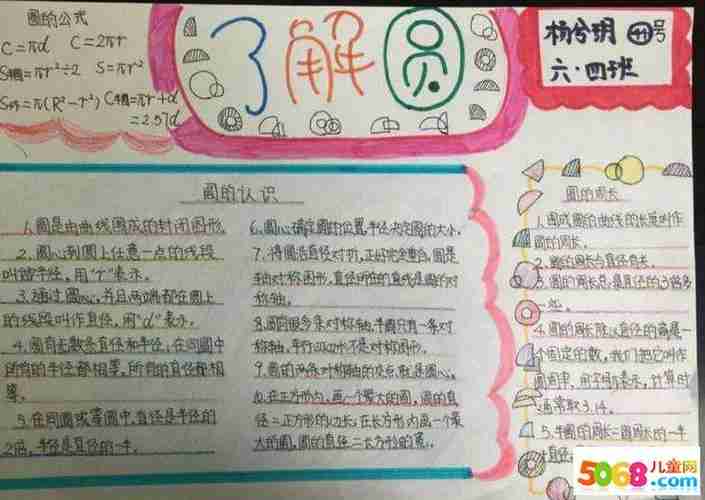 圆的公式
C=πd C=2πr
S半圆=πr²÷2 S=πr²
S环=π(R²-r²) C半圆=πr+d
=2.57d
了解圆
杨兮玥 44号
六·四班
圆的认识
1.圆是由曲线围成的封闭图形.
2.圆心到圆上任意一点的线段
叫做半径。用"r"表示。
3.通过圆心,并且两端都在圆上
的线段叫作直径。用"d"表示。
4.圆有无数条直径和半径;在同圆中
所有的半径都相等。所有的直径都相
等。
5.在同圆或等圆中,直径是半径的
2倍。半径是直径的一半。
6.圆心确定圆的位置,半径决定圆的大小。
7.将圆沿直径对折,正好完全重合。圆是
轴对称图形。直径所在的直线是圆的对
称轴。
8.圆有很多条对称轴,半圆只有一条对
称轴。平行四边形不是对称图形。
9.圆的两条对称轴的交点就是圆心。
10.在正方形内,画一个最大的圆,圆的直
径=正方形的边长;在长方形内画一个最
大的圆,圆的直径=长方形的宽。
圆的周长
1.围成圆的曲线的长度叫作
圆的周长。
2.圆的周长与直径有关。
3.圆的周长总是直径的3倍多
一些。
4.圆的周长除以直径的商是一
个固定的数。我们把它叫作
圆周率。用字母π表示。计算时
通常取3.14。
5.半圆的周长=圆周长的一半
+直径
5068儿童网
www.5068.com